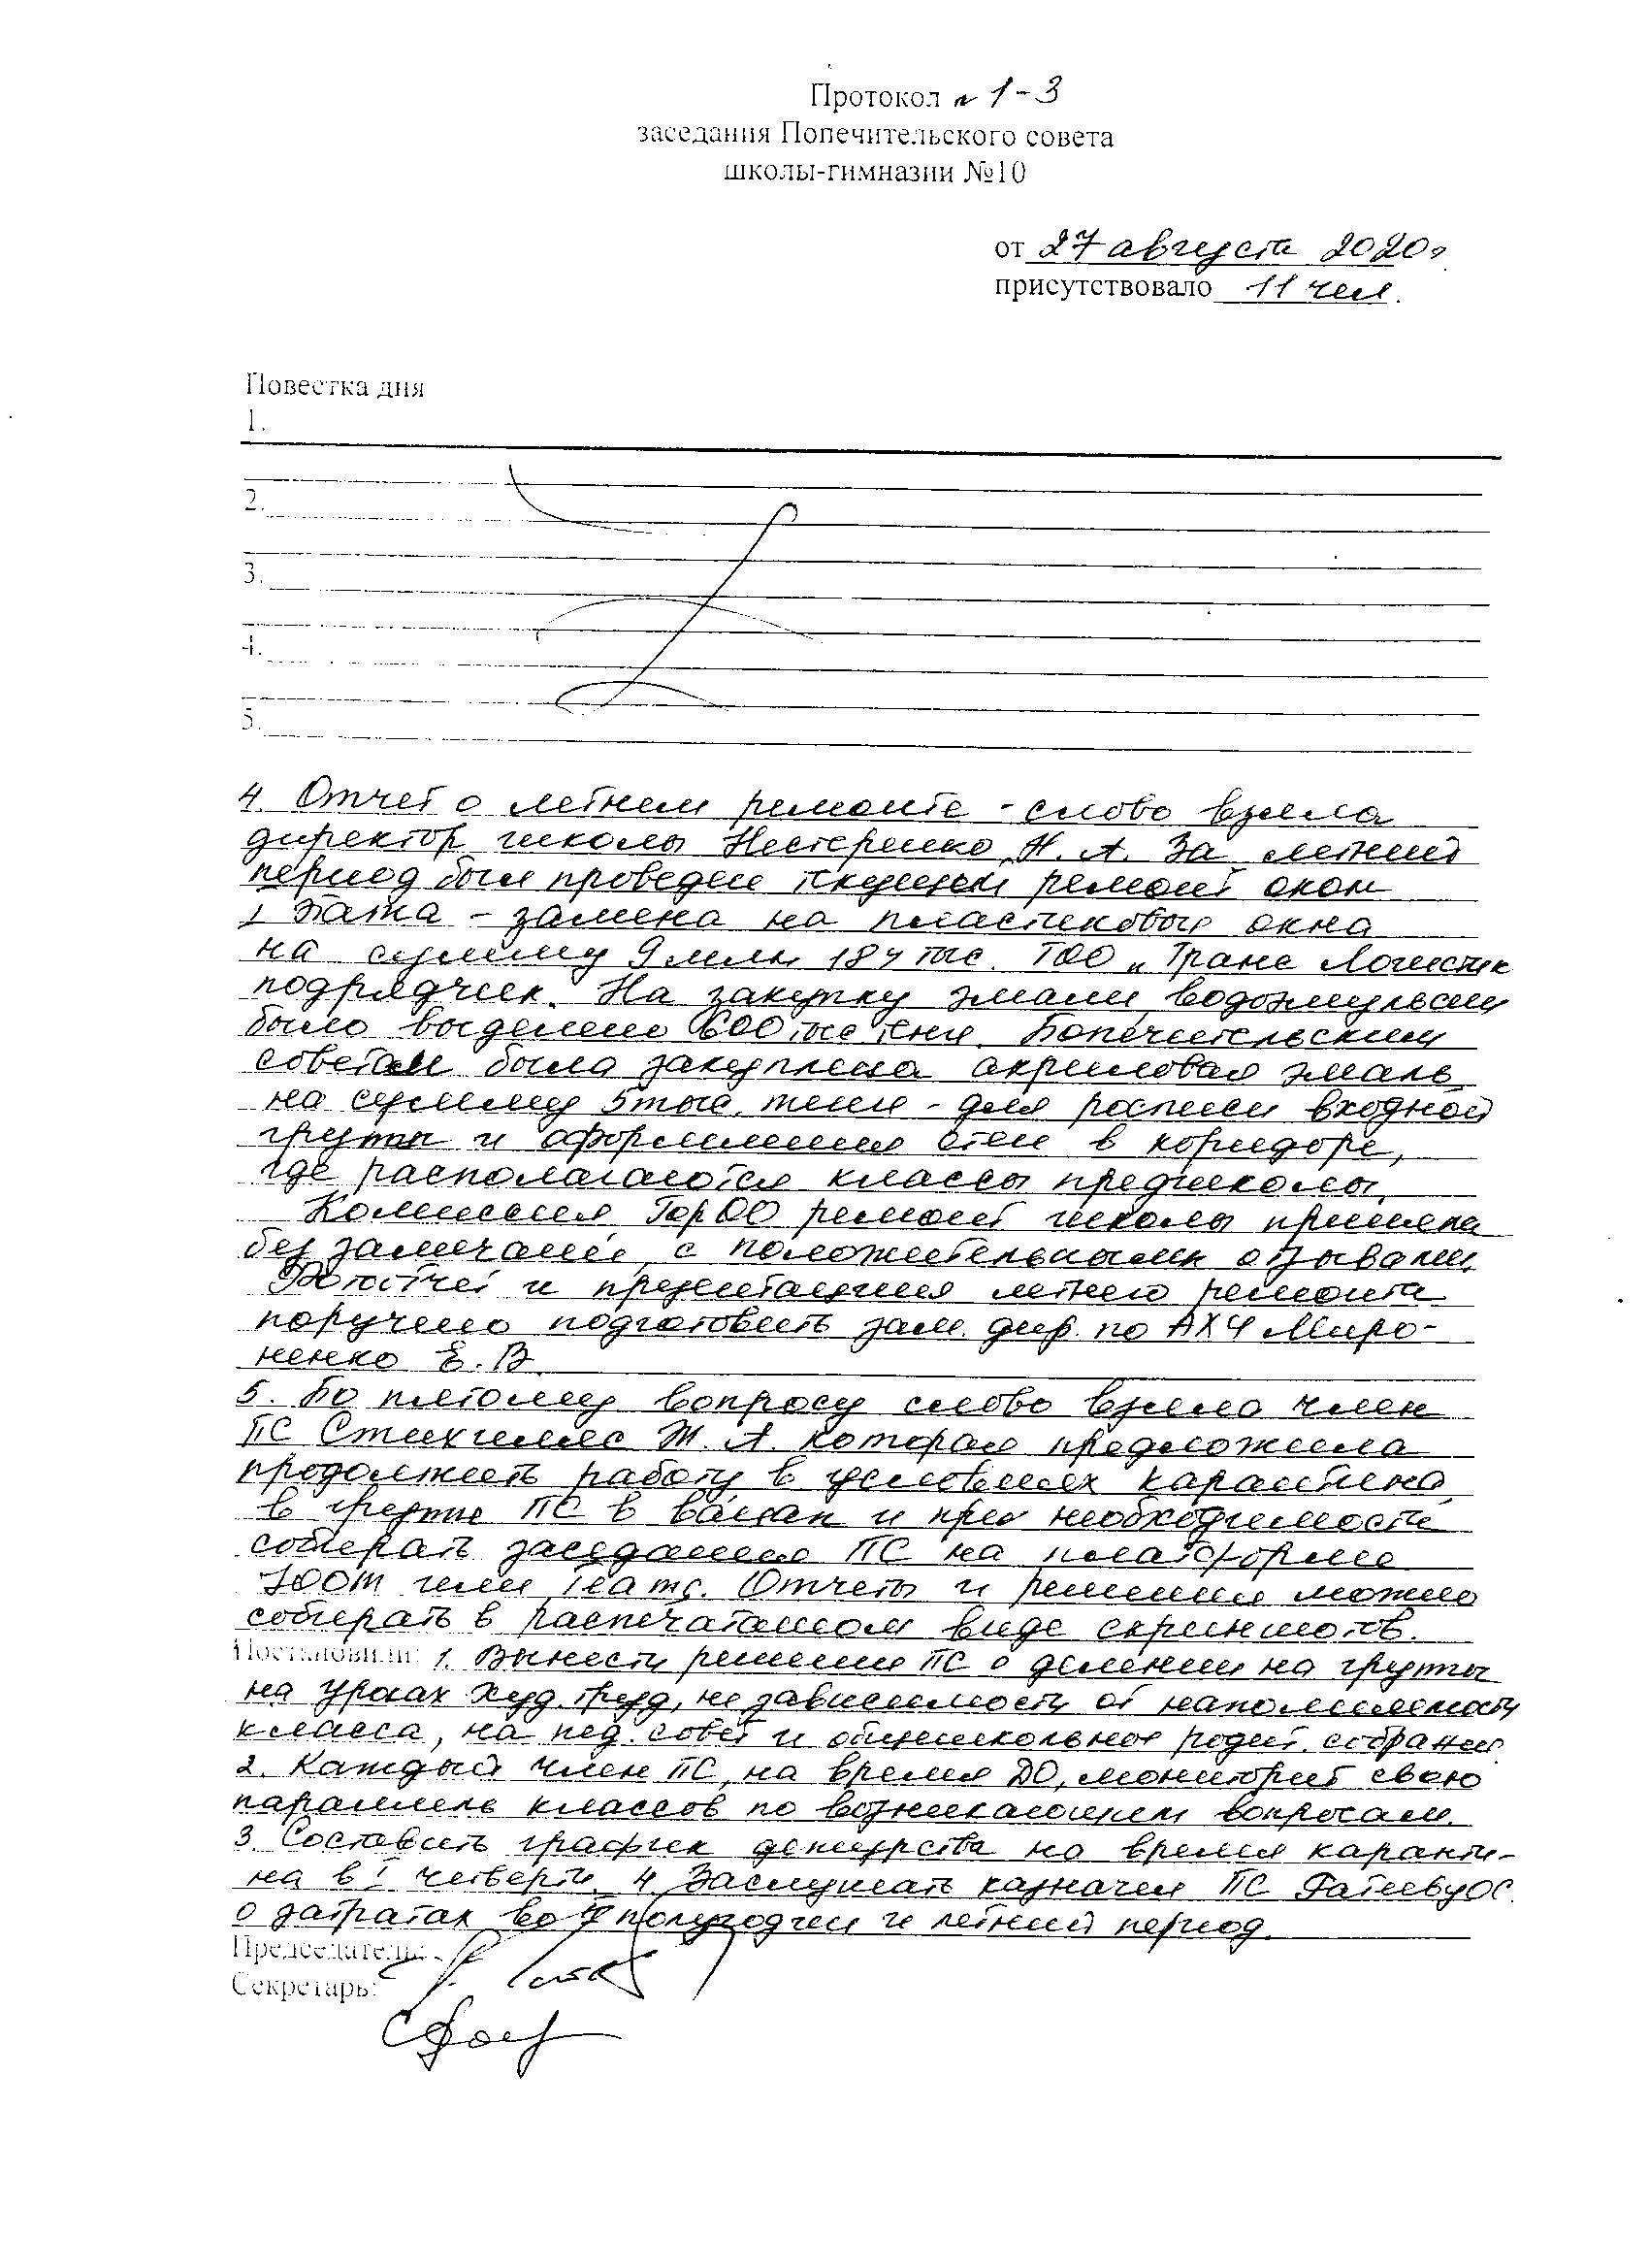 Протокол № 1-3
заседания Попечительского совета
школы-гимназии №10
от 27 августа 2020г
присутствовало 11 чел.
Повестка дня
1.
2.
3.
4.
5.
4. Отчет о летнем ремонте - слово взяла
директор школы Нестеренко Н. А. За летний
период был проведен текущем ремонт окон
1 этажа - замена на пластиковые окна
на сумму 9 млн 184 тыс. ТОО „Транс Логистик
подрядчик. На закупку эмали, водоэмульсии
было выделено 600 тыс тен. Попечительским
советам была закуплена акриловая эмаль
на сумму 5 тыс. тен - для росписи входной
группы и оформления стен в коридоре,
где располагаются классы предшколы.
Комиссия ГорОО ремонт школы приняла
без замечаний, с положительными отзывами.
Фотоотчет и презентация летнего ремонта
поручено подготовить зам. дир. по АХЧ Миро-
ненко Е. В.
5. По пятому вопросу слово взяла член
ПС Ж. А. которая предложила
продолжить работу в условиях карантина
в группе ПС в ватсап и при необходимости
собирать заседание ПС на платформе
ZOOM или Театс. Отчеты и решения можно
собирать в распечатаном виде скриншотов.
Постановили: 1. Вынести решении ПС о делении на группы
на уроках худ. труд, не зависимости от наполняемости
класса, на пед. совет и общешкольное родит. собрание.
2. Каждый член ПС, на время ДО, мониторит свою
параллель классов по возникающим вопросам.
3. Составить график дежурства на время каранти-
на в I четверти. 4. Заслушать казначея ПС ОС.
о затратах во II полугодии и летний период.
Председатель:
Секретарь: